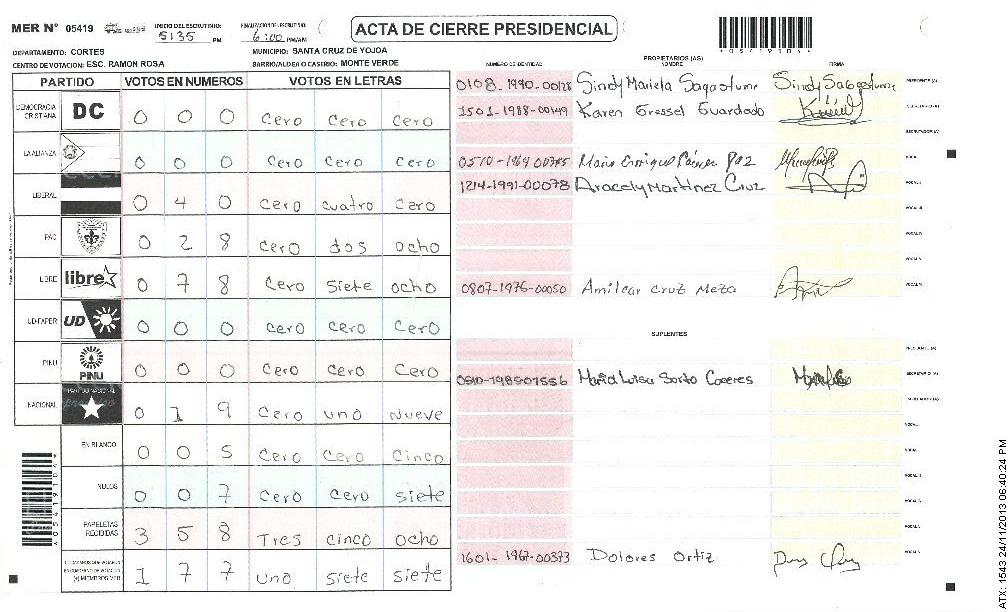 MER N° 05419
INICIO DEL ESCRUTINIO: 5:35 PM
FINALIZACION DE ESCRUTINIO: 6:00 PM/AM
ACTA DE CIERRE PRESIDENCIAL
DEPARTAMENTO: CORTES
MUNICIPIO: SANTA CRUZ DE YOJOA
CENTRO DE VOTACION: ESC. RAMON ROSA
BARRIO/ALDEA O CASERIO: MONTE VERDE
PARTIDO VOTOS EN NUMEROS VOTOS EN LETRAS
DEMOCRACIA CRISTIANA DC 0 0 0 cero cero cero
LA ALIANZA 0 0 0 cero cero cero
LIBERAL 0 4 0 cero cuatro cero
PAC 0 2 8 cero dos ocho
LIBRE libre 0 7 8 cero siete ocho
UD-FAPER UD 0 0 0 cero cero cero
PINU PINU 0 0 0 cero cero cero
NACIONAL 0 1 9 cero uno nueve
EN BLANCO 0 0 5 cero cero cinco
NULOS 0 0 7 cero cero siete
PAPELETAS RECIBIDAS 3 5 8 Tres cinco ocho
1 7 7 uno siete siete
PROPIETARIOS (AS)
NUMERO DE IDENTIDAD NOMBRE FIRMA
0108-1990-00128 Sindy Mariela Sagastume PRESIDENTE (A)
1501-1988-00149 Karen Gressel Guardado SECRETARIO (A)
ESCRUTADOR (A)
Mario Enrique
1214-1991-00078 Aracely Martinez Cruz
0807-1976-00050 Amilcar Cruz Meza
SUPLENTES
PRESIDENTE (A)
Maria Luisa SECRETARIO (A)
1601-1967-00373 Dolores Ortiz
ATX: 1543 24/11/2013 06:40:24 PM